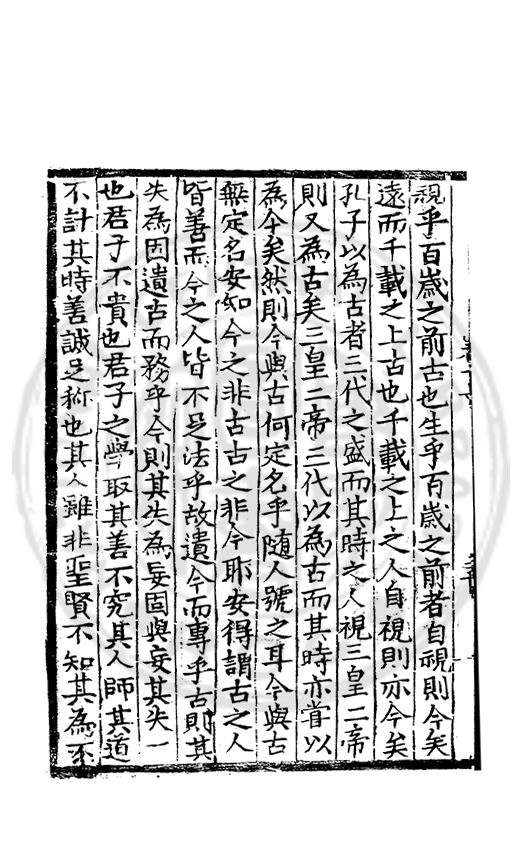 視乎百歲之前古也生乎百歲之前者自視則今矣
遠而千載之上古也千載之上之人自視則亦今矣
孔子以為古者三代之盛而其時之人視三皇二帝
則又為古矣三皇二帝三代以為古而其時亦甞以
為今矣然則今與古何定名乎隨人號之耳今與古
無定名安知今之非古古之非今耶安得謂古之人
皆善而今之人皆不足法乎故遺今而專乎古則其
失為固遺古而務乎今則其失為妄固與妄其失一
也君子不貴也君子之學取其善不究其人師其道
不計其時善誠足称也其人雖非聖賢不知其為不